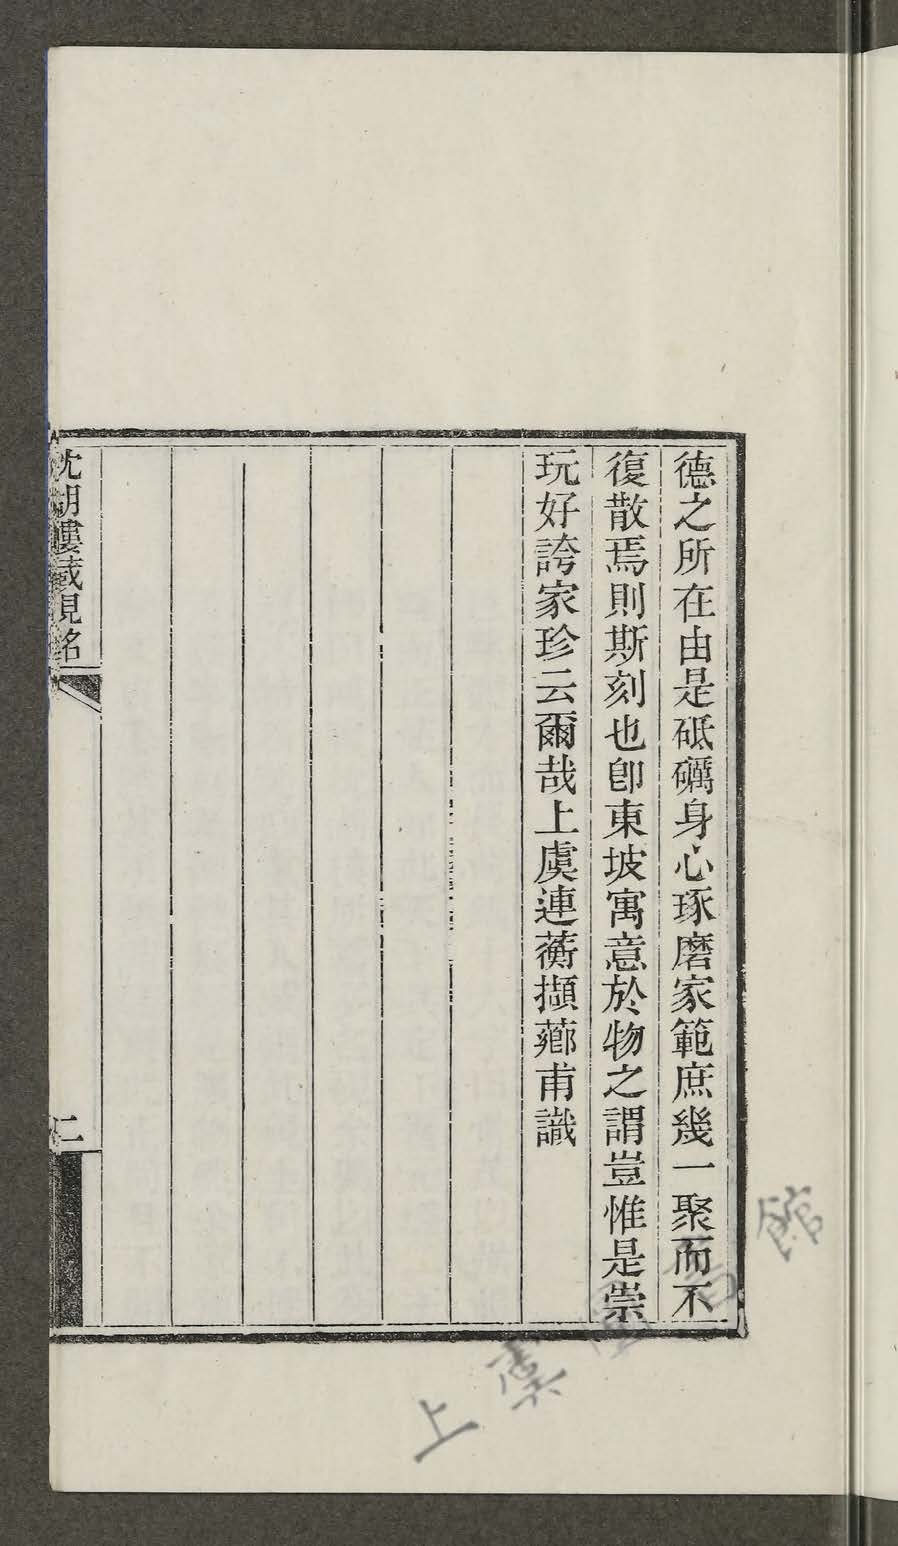 德之所在由是砥礪身心琢磨家範庶幾一聚而不
復散焉則斯刻也卽東坡寓意於物之謂豈惟是崇
玩好誇家珍云爾哉上虞連蘅擷薌甫識
枕湖樓藏硯銘
二
上虞圖書館